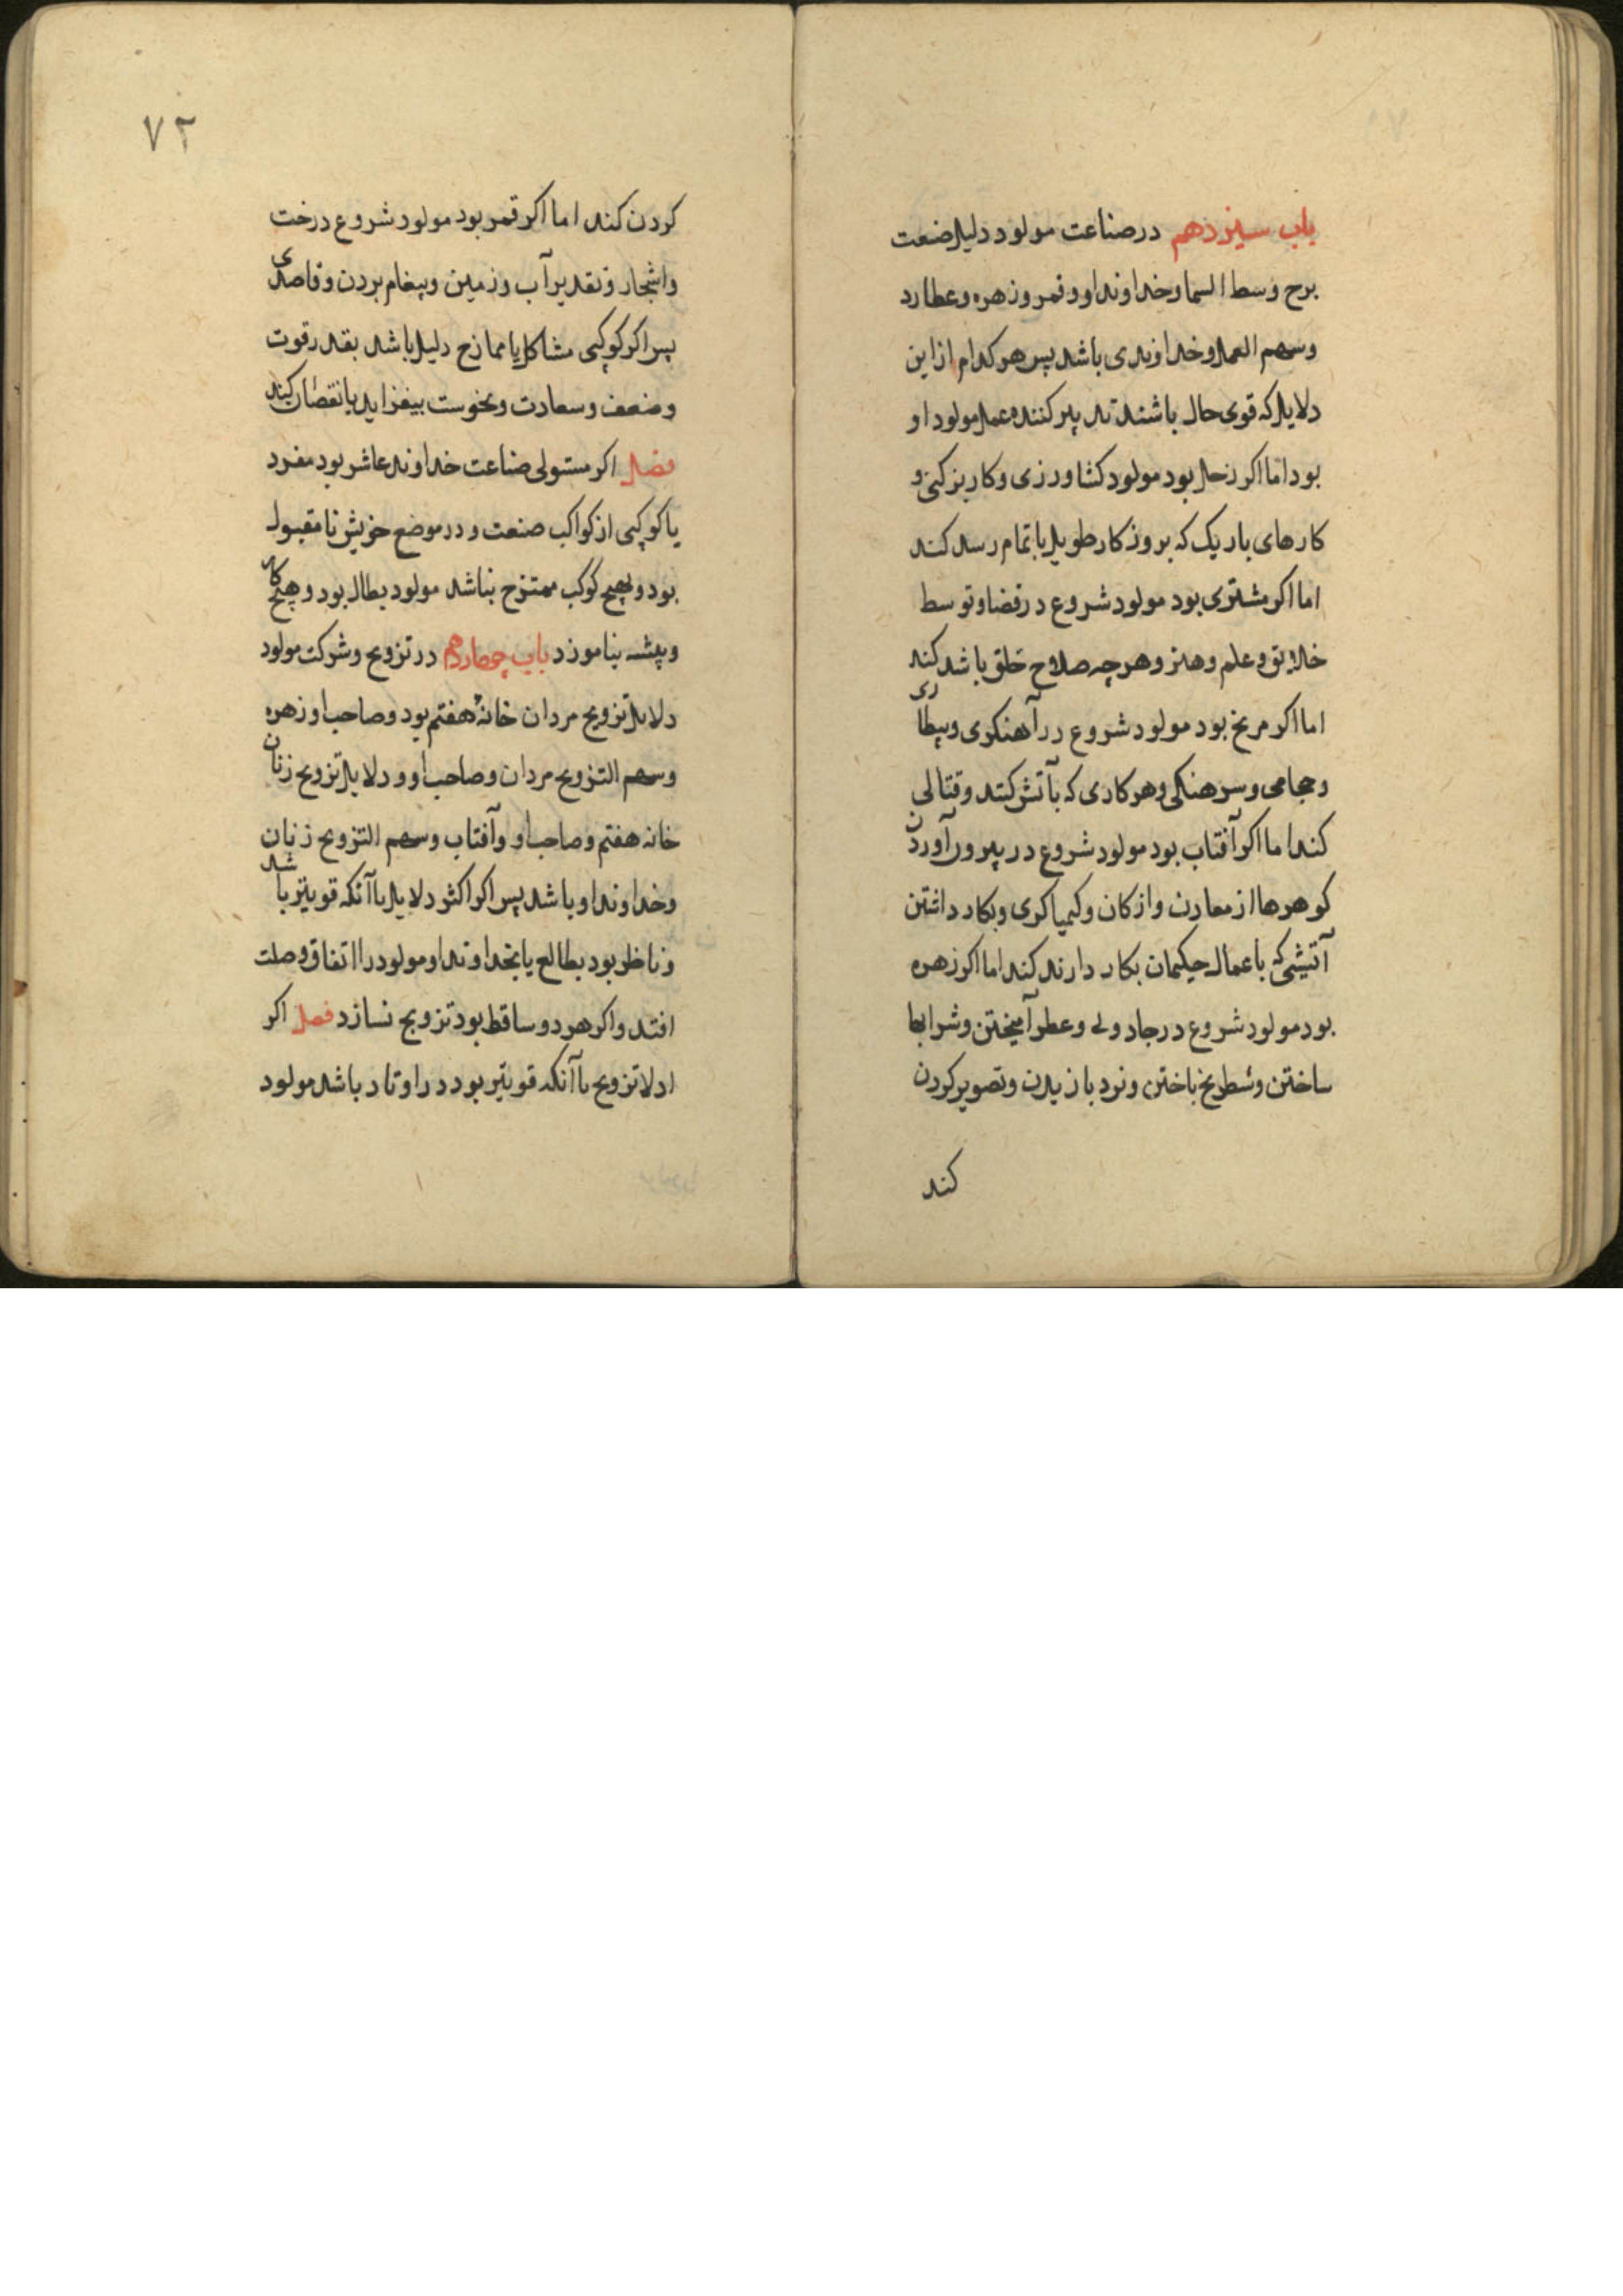 باب سیزدهم در صناعت مولود دلیل صنعت
برج وسط السما و خداوند او و قمر و زهره و عطارد
و سهم العمل و خداوندی باشد پس هر کدام از این
دلایل که قوی حال باشند تدبیر کننده عمل مولود او
بود اما اکر زحل بود مولود کشاورزی و کاریز کنی و
کارهای باریک که بروزکار طویل باتمام رسد کند
اما اکر مشتری بود مولود شروع در قضا و توسط
خلایق و علم و هنر و هرچه صلاح خلق باشد کند
اما اکر مریخ بود مولود شروع در آهنکری و بیطاری
و حجامی و سرهنکی و هر کاری که بآتش کنند و قتالی
کند اما اکر آفتاب بود مولود شروع در بیرون آوردن
کوهرها از معادن و از کان و کیمیاکری و بکار داشتن
آتیشی که باعمال حکیمان بکار دارند کند اما اکر زهره
بود مولود شروع در جادویی و عطر آمیختن و شرابها
ساختن و شطرنج باختن و نرد بازیدن و تصویر کردن
کند
۷۲
کردن کند اما اکر قمر بود مولود شروع درخت
و اشجار و تقدیر آب و زمین و پیغام بردن و قاصدی
پس اکر کوکبی مشاکل یا ممازج دلیل باشد بقدر قوت
و ضعف و سعادت و نحوست بیفزاید یا نقصان کند
فصل اکر مستولی صناعت خداوند عاشر بود مفرد
یا کوکبی از کواکب صنعت و در موضع خویش نامقبول
بود و بهیچ کوکب ممتزج نباشد مولود بطال بود و هیچ کار
و پیشه نیاموزد باب چهاردهم در تزویج و شرکت مولود
دلایل تزویج مردان خانهٔ هفتم بود و صاحب او زهره
و سهم التزویج مردان و صاحب او و دلایل تزویج زنان
خانه هفتم و صاحب او و آفتاب و سهم التزویج زنان
و خداوند او باشد پس اکر اکثر دلایل یا آنکه قویتر باشد
و ناظر بود بطالع یا بخداوند او مولود را اتفاق وصلت
افتد و اکر هر دو ساقط بود تزویج نسازد فصل اکر
ادلا تزویج یا آنکه قویتر بود در اوتاد باشد مولود